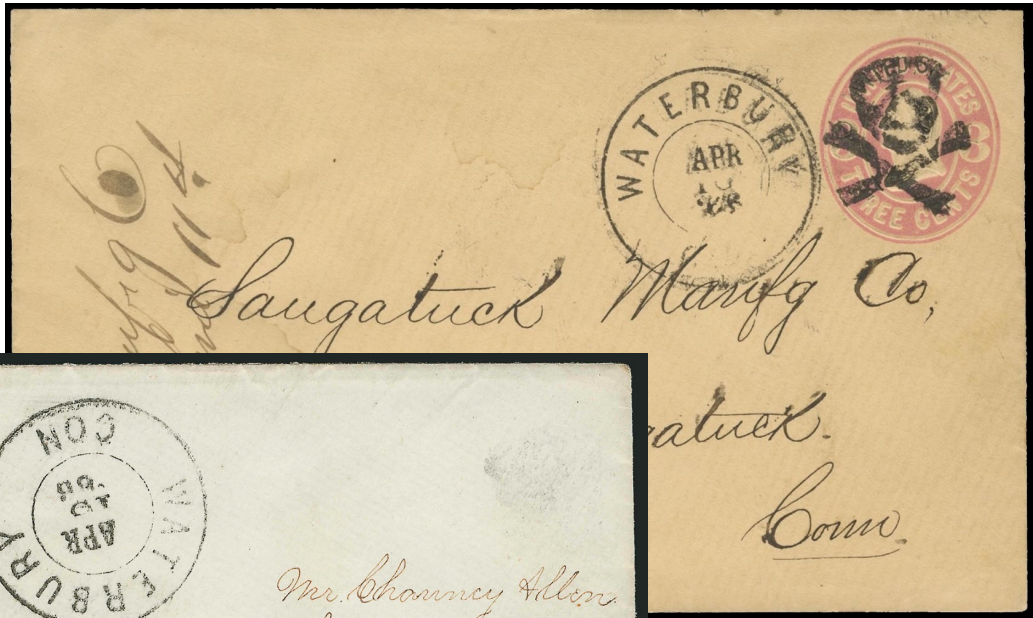 WATERBURY
APR
10
UNITED STATES
THREE CENTS
3
Saugatuck Manfg Co,
Conn.
CON
WATERBURY
APR
10
'66
Mr. Chauncy Allen